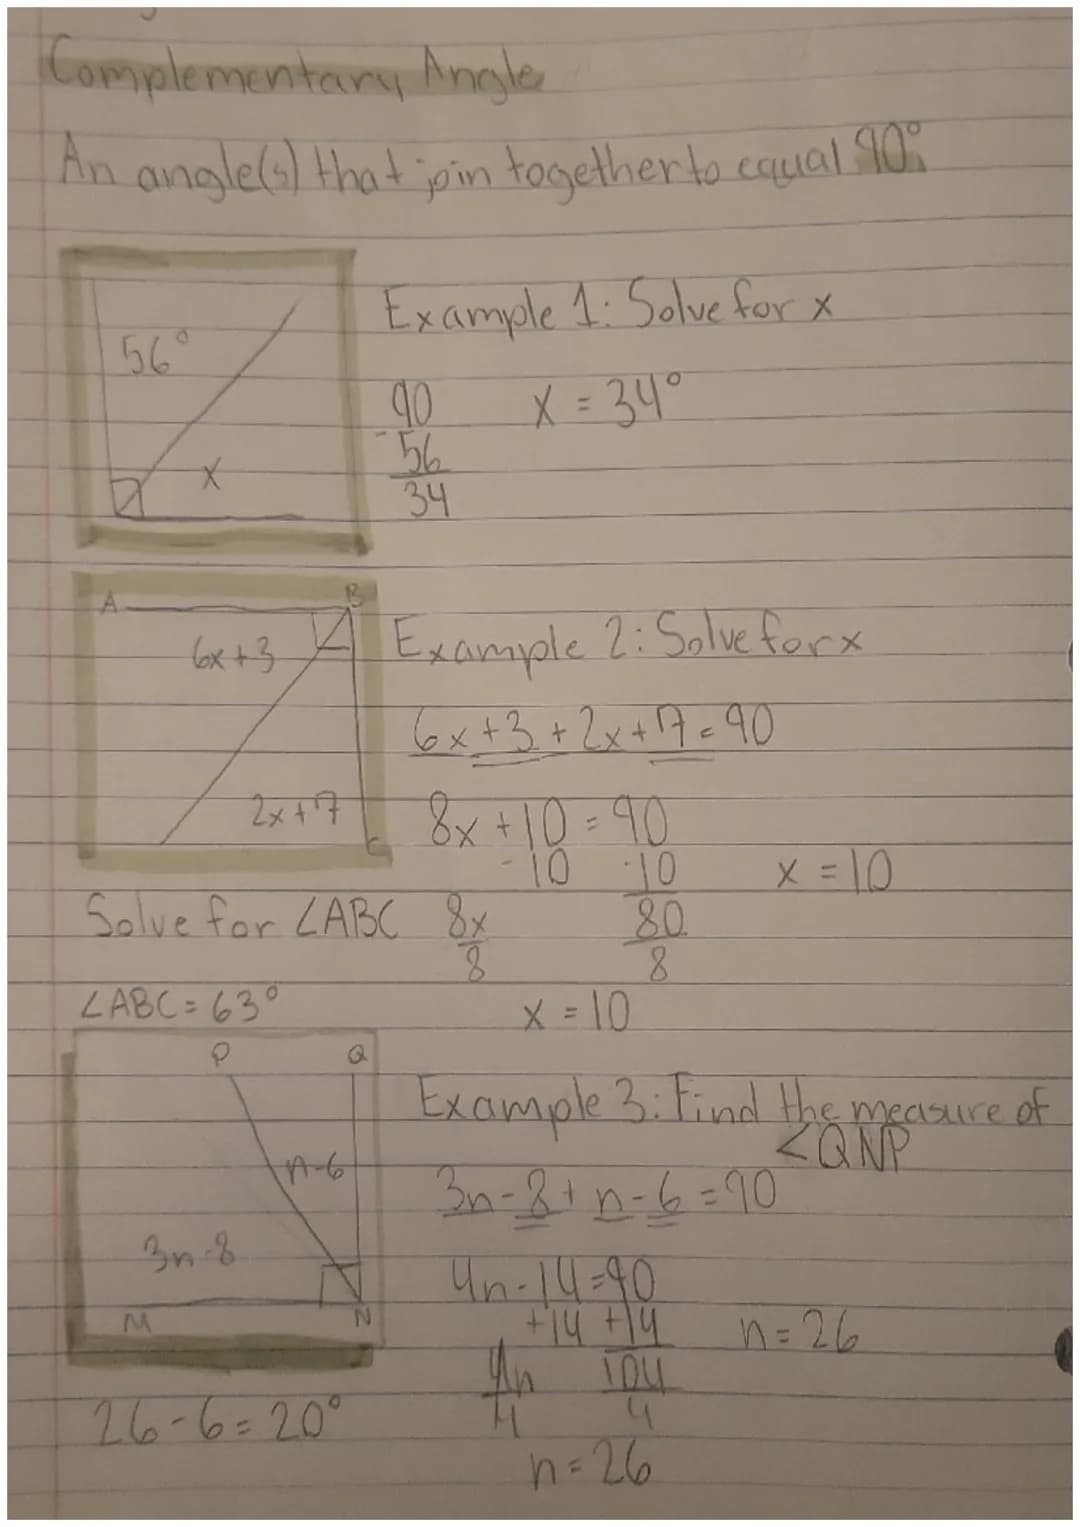 Complementary Angle
An angle(s) that join together to equal 90°
56°
x
Example 1: Solve for x
90
-56
34
x = 34°
A B
6x+3
2x+7
C
Example 2: Solve for x
6x+3+2x+7=90
8x+10=90
-10 -10
8x 80
8 8
x=10
x=10
Solve for ∠ABC
∠ABC=63°
P Q
n-6
3n-8
M N
Example 3: Find the measure of
<QNP
3n-8+n-6=90
4n-14=90
+14 +14
4n 104
4 4
n=26
n=26
26-6=20°